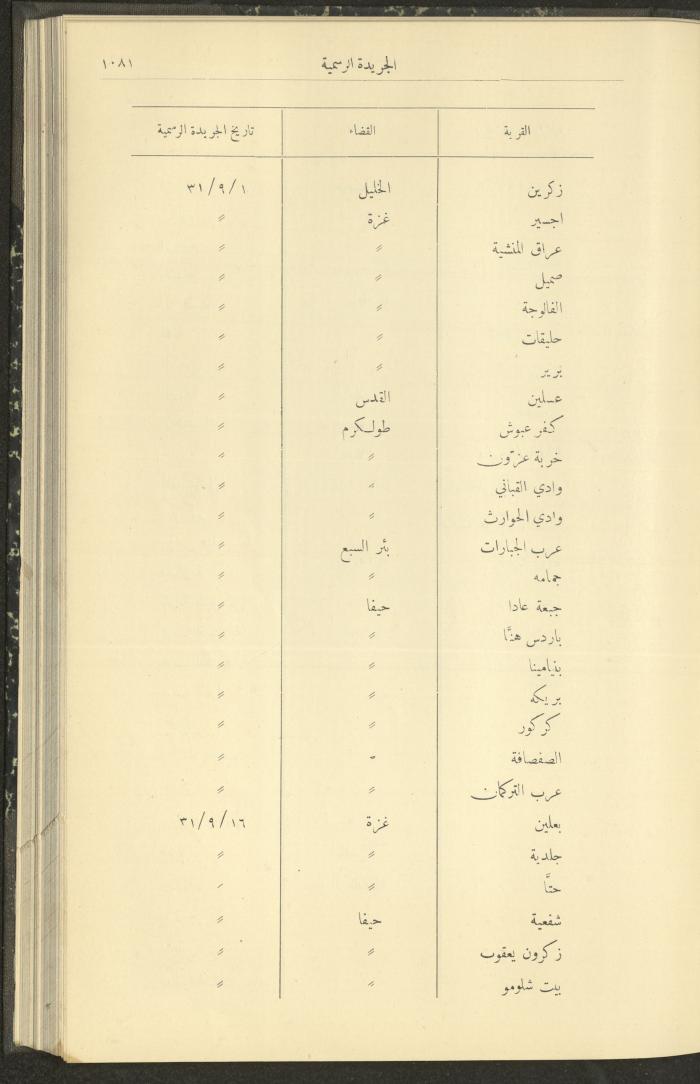 الجريدة الرسمية ١٠٨١
القرية القضاء تاريخ الجريدة الرسمية
زكرين الخليل ٣١/٩/١
اجسير غزة 〃
عراق المنشية 〃 〃
صميل 〃 〃
الفالوجة 〃 〃
حليقات 〃 〃
برير 〃 〃
عسلين القدس 〃
كفر عبوش طولكرم 〃
خربة عزّون 〃 〃
وادي القباني 〃 〃
وادي الحوارث 〃 〃
عرب الجبارات بئر السبع 〃
جمامه 〃 〃
جبعة عادا حيفا 〃
باردس هنَّا 〃 〃
بنيامينا 〃 〃
بريكه 〃 〃
كركور 〃 〃
الصفصافة 〃 〃
عرب التركمان 〃 〃
بعلين غزة ٣١/٩/١٦
جلدية 〃 〃
حتَّا 〃 〃
شفعية حيفا 〃
زكرون يعقوب 〃 〃
بيت شلومو 〃 〃